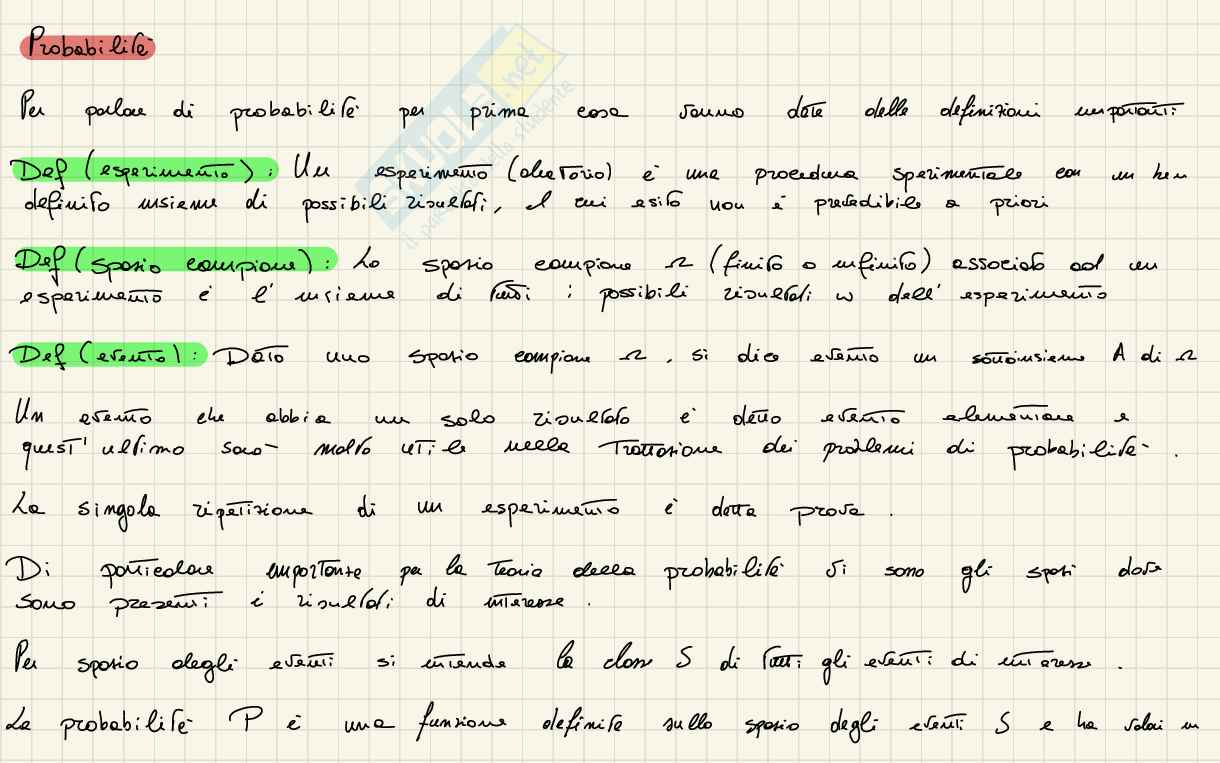 Probabilità
Per parlare di probabilità per prima cosa vanno date delle definizioni importanti:
Def (esperimento): Un esperimento (aleatorio) è una procedura sperimentale con un ben
definito insieme di possibili risultati, il cui esito non è predicibile a priori
Def (spazio campione): Lo spazio campione Ω (finito o infinito) associato ad un
esperimento è l'insieme di tutti i possibili risultati w dell'esperimento
Def (evento): Dato uno spazio campione Ω, si dice evento un sottoinsieme A di Ω
Un evento che abbia un solo risultato è detto evento elementare e
quest'ultimo sarà molto utile nella trattazione dei problemi di probabilità.
La singola ripetizione di un esperimento è detta prova.
Di particolare importante per la teoria della probabilità vi sono gli spazi dove
sono presenti i risultati di interesse.
Per spazio degli eventi si intende la classe S di tutti gli eventi di interesse.
La probabilità P è una funzione definita sullo spazio degli eventi S e ha valori in
SKUOLA.net
il paradiso dello studente